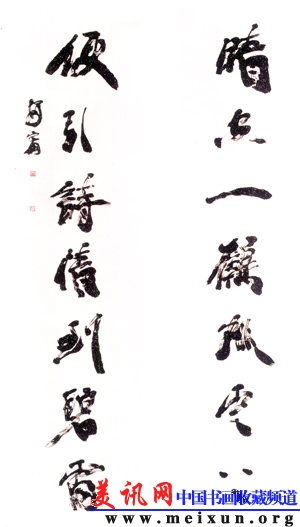 晴空一鶴排雲上
便引詩情到碧霄
美讯网 中国书画收藏频道
www.meixun.org